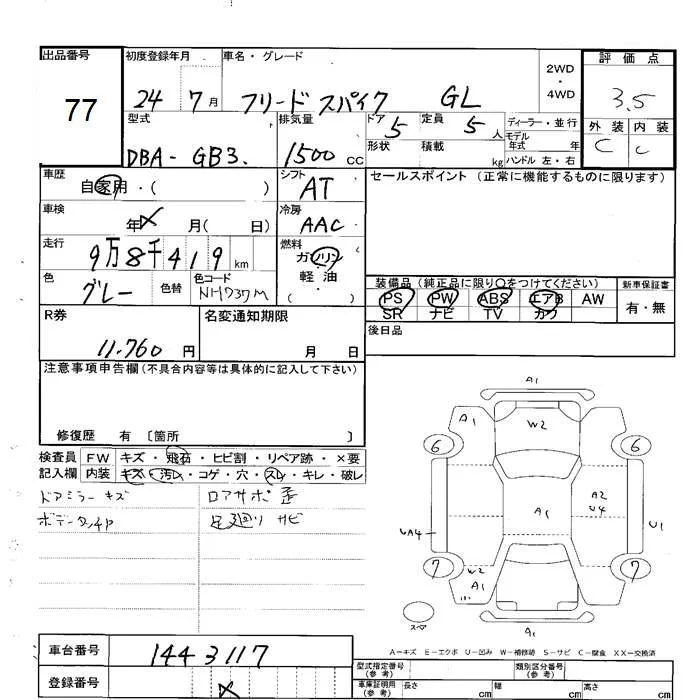 出品番号 初度登録年月 車名・グレード 評価点
77 24 7月 フリード スパイク GL 2WD・4WD 3.5
型式 排気量 ドア 定員 ディーラー・並行 外装 内装
DBA-GB3. 1500cc 5 5人 モデル年式 年 C C
形状 積載 kg ハンドル 左・右
車歴 自家用・( ) シフト AT セールスポイント (正常に機能するものに限ります)
車検 年 月( 日) 冷房 AAC
走行 9万8千419km 燃料 ガソリン・軽油・( )
色 グレー 色替 色コード NH737M
装備品 (純正品に限り○をつけてください) 新車保証書
PS PW ABS エアB AW 有・無
SR ナビ TV カワ
R券 11.760円 名変通知期限 月 日 後日品
注意事項申告欄(不具合内容等は具体的に記入して下さい)
修復歴 有 〔箇所 〕
検査員 FW キズ・飛石・ヒビ割・リペア跡・×要
記入欄 内装 キズ・汚レ・コゲ・穴・スレ・キレ・破レ
ドアミラーキズ ロアサポ歪
足廻り サビ
A1
A1 W2
6 6
A2
U4
A1
UA4 U1
7 7
W2
A1
スペア
A1
A=キズ E=エクボ U=凹み W=補修跡 S=サビ C=腐食 XX=交換済
車台番号 1443117
型式指定番号(参考) 類別区分番号(参考)
登録番号
車庫証明用(参考) 長さ cm 幅 cm 高さ cm